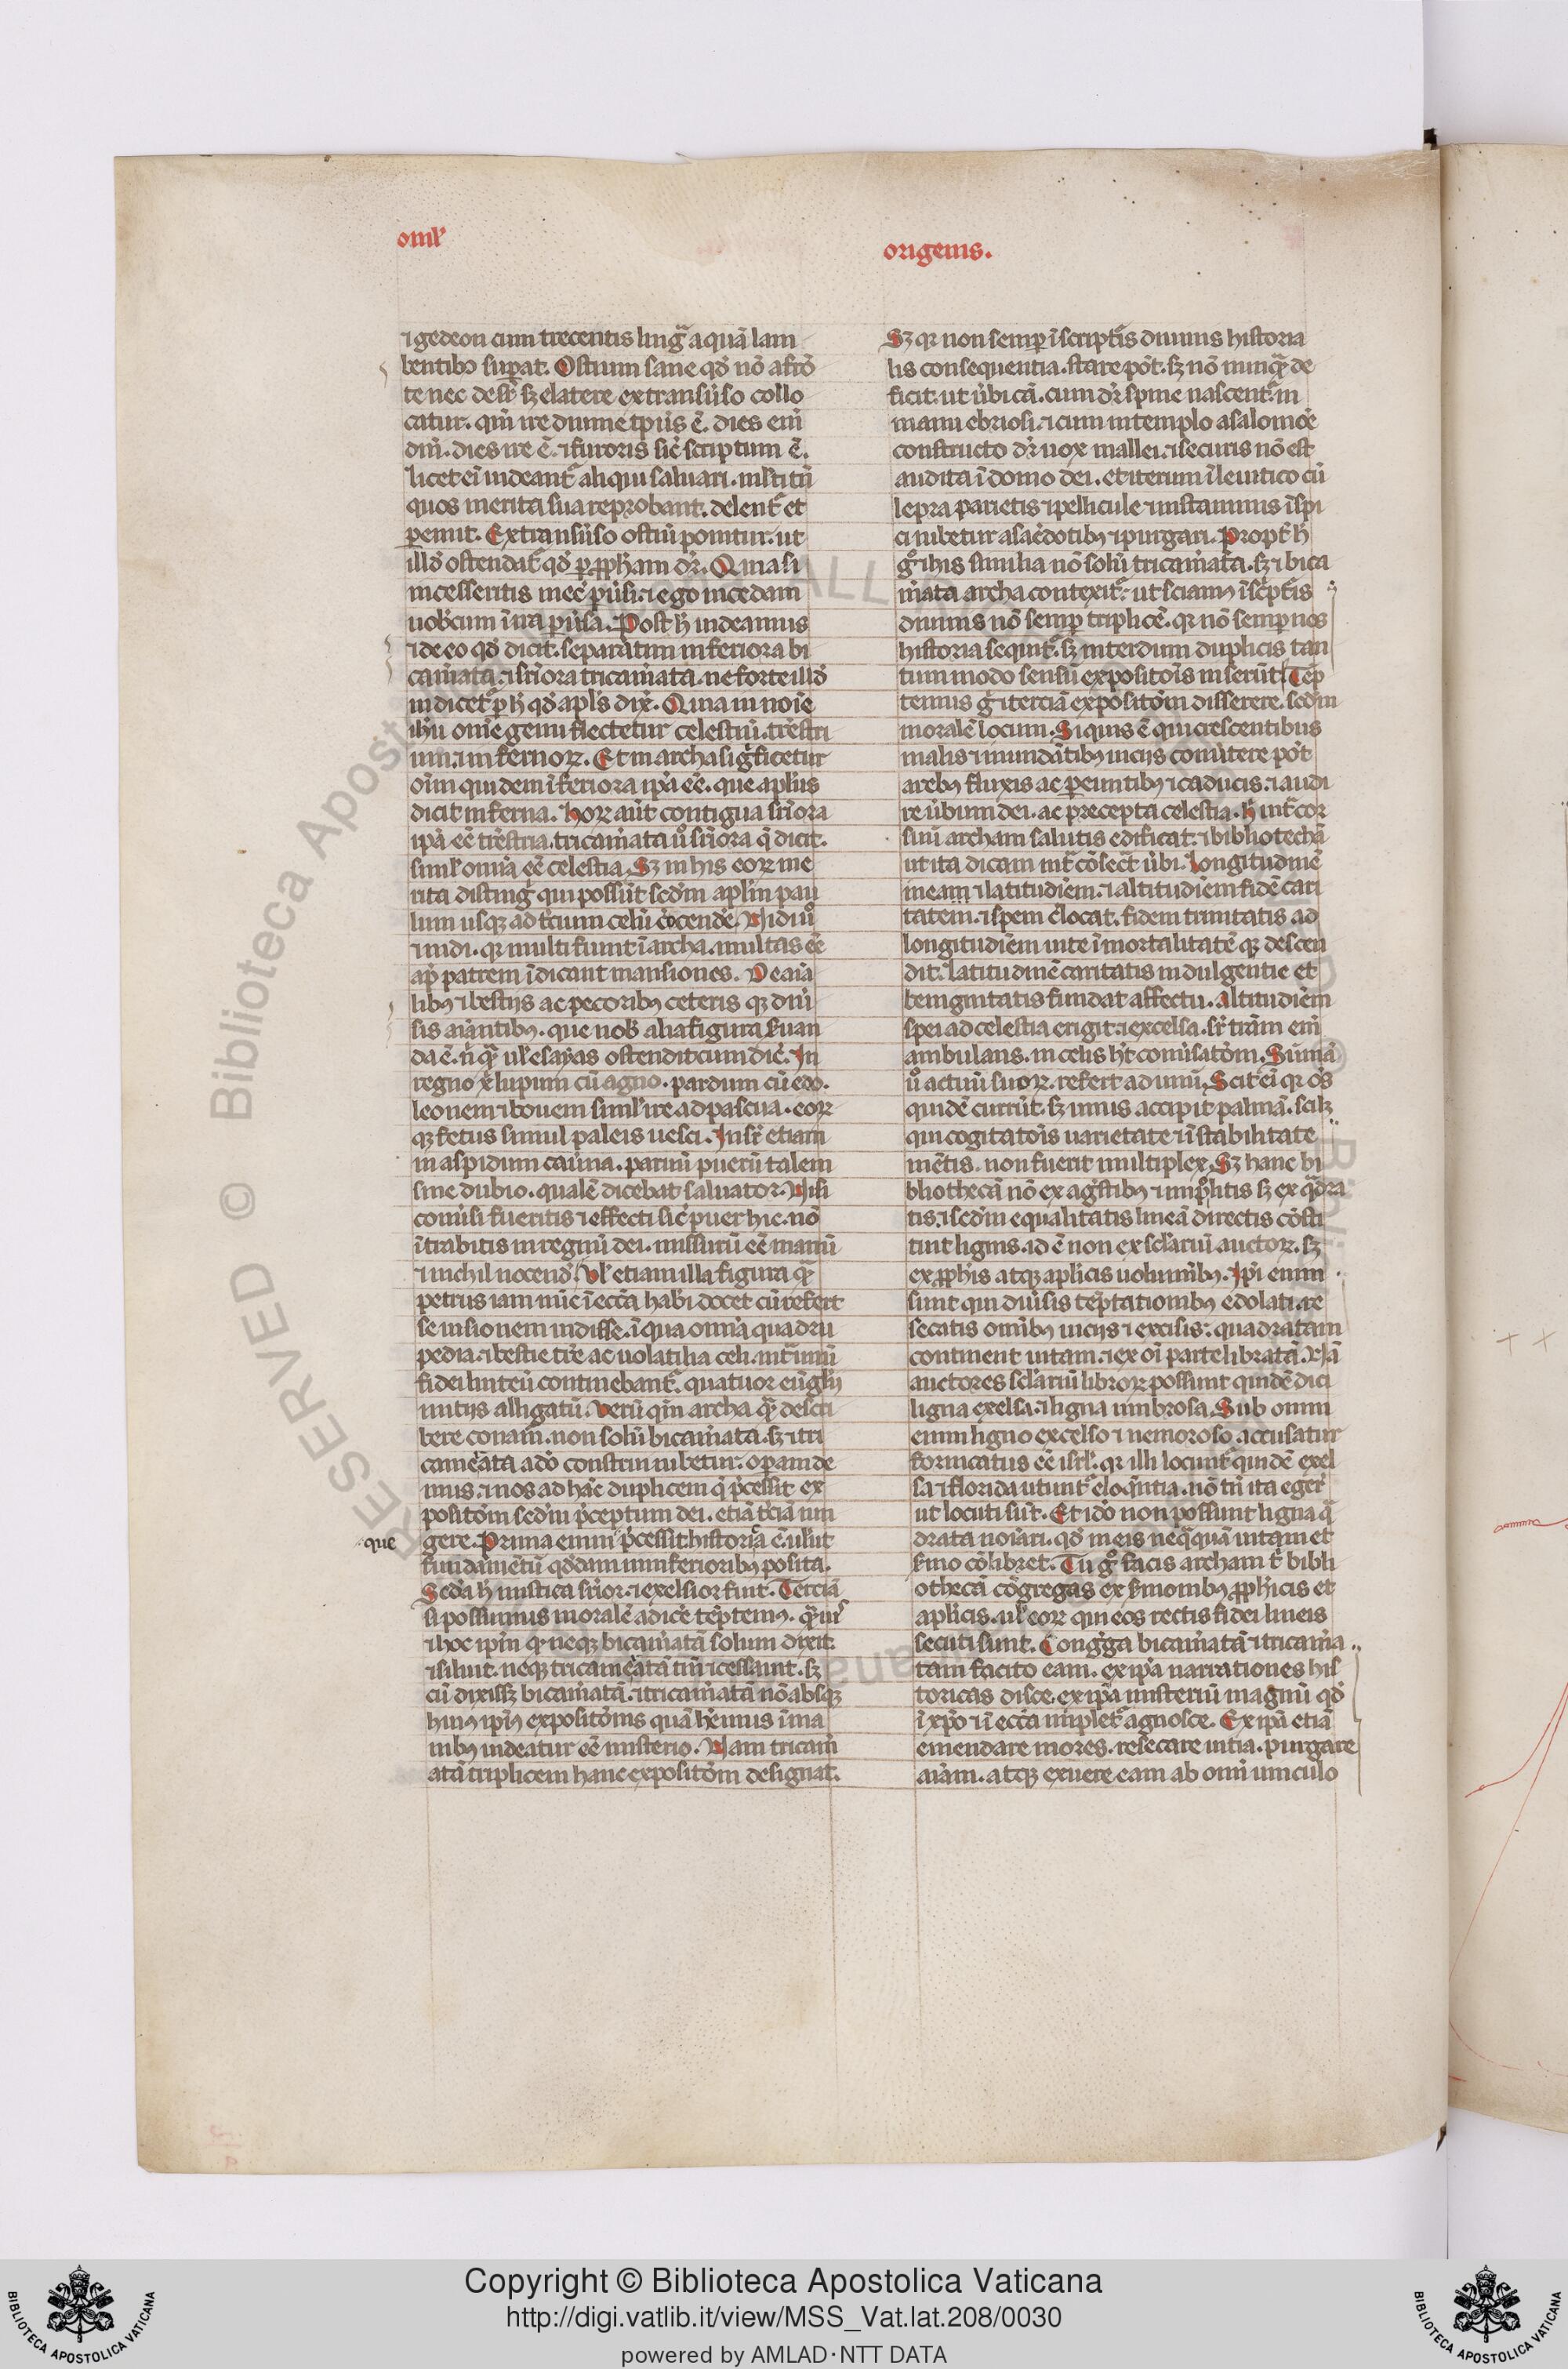 oml'
origenis.
⁊ gedeon cum trecentis ling̃ aquã lam
bentib; supat. Ostium sane qd' nõ a frõ
te nec desr̃ sz e latere ex transũso collo
catur. qm̃ ire diuine tp̃us ẽ. dies eni
dñi. dies ire ẽ. ⁊ furoris sic̃ scriptum ẽ.
licet ei uideant̃ aliqui saluari. m̃lti tñ
quos merita sua reprobant. delent̃ et
peũnt. Ex transũso ostiũ ponitur. ut
illd' ostendat̃ qd' p pph̃am dr̃. Quasi
incesseritis mec̃ pũsi. ⁊ ego incedam
uob'cum ĩ ira pũsa. Post h̃ uideamus
⁊ de eo qd' dicit̃. separatim inferiora bi
cam̃ata. ⁊ supiora tricam̃ata. ne forte illd'
indicet̃ p h̃ qd' apl's dix̃. Quia in noĩe
ihũ om̃e genu flectetur celestiũ. tr̃estri
um. ⁊ infernoꝝ. Et in archa sig̃ficetur
oĩm quidem ĩferiora ip̃a eẽ. que apl'us
dicit inferna. hoꝝ aũt contigua sr̃iora
ip̃a eẽ tr̃estria. tricam̃ata ũo sr̃iora q̃ dicit.
simĩ' omĩa eẽ celestia. Sz in his eoꝝ me
rita disting̃ qui possũt sed̃m apl'm pau
lum usqz ad t̃cium celũ c̃scende. Nidiu
⁊ nidi. qz multi fiunt ĩ archa. multas eẽ
ap̃ patrem ĩdicant mansiones. De aĩa
lib; ⁊ bestijs ac pecorib; ceteris qz diũ
sis aĩantib;. que nob' alia figura s̃uan
da ẽ. ñ q̃ ul' esayas ostendit cum dic̃. In
regno x̃i lupum cũ agno. pardum cũ edo.
leonem ⁊ bouem simĩ' ire ad pascua. eoꝝ
qz fetus simul paleis uesci. Insr̃ etiam
in aspidum cauẽna. paruũ puerũ talem
sine dubio. qualẽ dicebat saluator. Nisi
conũsi fueritis ⁊ effecti sic̃ puer hic. nõ
ĩtrabitis in regnũ dei. missurũ eẽ manũ
⁊ nichil nocend'. Ul' etiam illa figura q̃
petrus iam nũc ĩ ecc̃a hab'i docet cũ refert
se uisionem uidisse. ĩ qua omĩa quadru
pedia. ⁊ bestie tr̃e ac uolatilia celi. int̃ unũ
fidei linteũ continebant̃. quatuor eũgl'ij
initijs alligatũ. Verũ qm̃ archa q̃ descri
bere conam̃. non solũ bicam̃ata. sz ⁊ tri
camẽata a dõ construi iubetur. operam de
mus. ⁊ nos ad hãc duplicem q̃ p̃cessit ex
posito͂m sed̃m p̃ceptum dei. etiã t̃ciã iun
gere. Prima enim p̃cessit historia ẽ uel'ut
que
fundam̃entũ qd̃dam in inferiorib; posita.
Sed̃a h̃ mistica sr̃ior. ⁊ exelsior fuit. Terciã
si possumus moralẽ adic̃e tẽptem;. q̃uis̃
⁊ hoc ip̃m q̃ neqz bicam̃atã solum dixit
⁊ siluit. neqz tricam̃eatã tm̃ ⁊ cessauit. sz
cũ dixissz bicam̃atã. ⁊ tricam̃atã nõ absqz
hui; ip̃i; exposito͂nis quã hẽmus ĩ ma
nib; uideatur eẽ misterio. Nam tricam̃
atã triplicem hanc exposito͂m designat.
Sz qr non semp ĩ script̃is diuinis historia
lis consequentia. stare põt. sz nõ nunq̃ de
ficit. ut ũbi cã. cum dr̃ spine nascent̃ in
manu ebriosi. ⁊ cum in templo a salomõe
constructo dr̃ uox mallei. ⁊ securis nõ est
audita ĩ domo dei. et iterum ĩ leuitico cũ
lepra parietis ⁊ pellicule ⁊ in staminis ĩspi
ci iubetur a sac̃dotib; ⁊ purgari. Propt̃ h̃
g̃ ⁊ his similia nõ solũ tricam̃ata. sz ⁊ bica
m̃ata archa contexit̃. ut sciam; ĩ sc̃ptis
diuinis nõ semp triplicẽ. qr nõ semp nos
historia sequit̃. sz interdum duplicis tan
tum modo sensũ exposito͂is inserũt. Tẽp
temus g̃ ⁊ terciã exposito͂m disserere. sed̃m
moralẽ locum. Si quis ẽ qui crescentibus
malis ⁊ inundãtib; uicijs conũtere põt
a reb; fluxis ac peuntib; ⁊ caducis. ⁊ audi
re ũbum dei. ac precepta celestia. h̃ int̃ cor
suũ archam salutis edificat. ⁊ bibliothecã
ut ita dicam int̃ c̃õsecr̃t ũbi. Longitudinẽ
in eam ⁊ latitudiẽm. ⁊ altitudiẽm fidẽ cari
tatem. ⁊ spem c̃locat. fidem trinitatis ad
longitudiẽm uite ĩmortalitatẽ qz descen
dit. latitudinẽ caritatis indulgentie et
benignitatis fundat affectu. altitudiẽm
spei ad celestia erigit. ⁊ excelsa. sr̃ tr̃am eni
ambulans. in celis h̃t conũsato͂m. Sũmã
ũo actuũ suoꝝ. refert ad unũ. Scit ei qr oẽs
quidẽ currũt. sz unus accipit palmã. scilz
qui cogitato͂is uarietate ⁊ ĩstabilitate
mẽtis. non fuerit multiplex. Sz hanc bi
bliothecã nõ ex ag̃stib; ⁊ inpolitis sz ex q̃dra
tis. ⁊ sed̃m equalitatis lineã directis c̃õsti
tuit lignis. id ẽ non ex sc̃lariũ auctoꝝ. sz
ex pph̃is atqz apl'icis uoluminib;. Ip̃i enim
sunt qui diũsis tẽptationib; edolati. re
secatis omĩb; uicijs ⁊ excisis. quadratam
continent uitam. ⁊ ex oĩ parte libratã. Nã
auctores sc̃lariũ libroꝝ possunt quidẽ dici
ligna exelsa. ⁊ ligna umbrosa. Sub omni
enim ligno excelso ⁊ nemoroso accusatur
fornicatus eẽ isrl'. qr illi locunt̃ quidẽ exel
sa ⁊ florida utunt̃ eloq̃ntia. nõ tñ ita eger̃
ut locuti sũt. Et ido non possunt ligna q̃
drata noĩari. qd' in eis neq̃quã uitam et
s̃mo cõlibret. Tu g̃ si facis archam si bibli
othecã cõgregas ex s̃monib; pph̃icis et
apl'icis. ul' eoꝝ qui eos rectis fidei lineis
secuti sunt. Congg̃a bicam̃atã ⁊ tricam̃a
tam facito eam. ex ip̃a narrationes his
toricas disce. ex ip̃a misteriũ magnũ qd'
ĩ xp̃o ⁊ ĩ ecc̃a implet̃ agnosce. Ex ip̃a etiã
emendare mores. resecare uitia. purgare
aĩam. atqz exuere eam ab omĩ uinculo
Copyright © Biblioteca Apostolica Vaticana
http://digi.vatlib.it/view/MSS_Vat.lat.208/0030
powered by AMLAD·NTT DATA